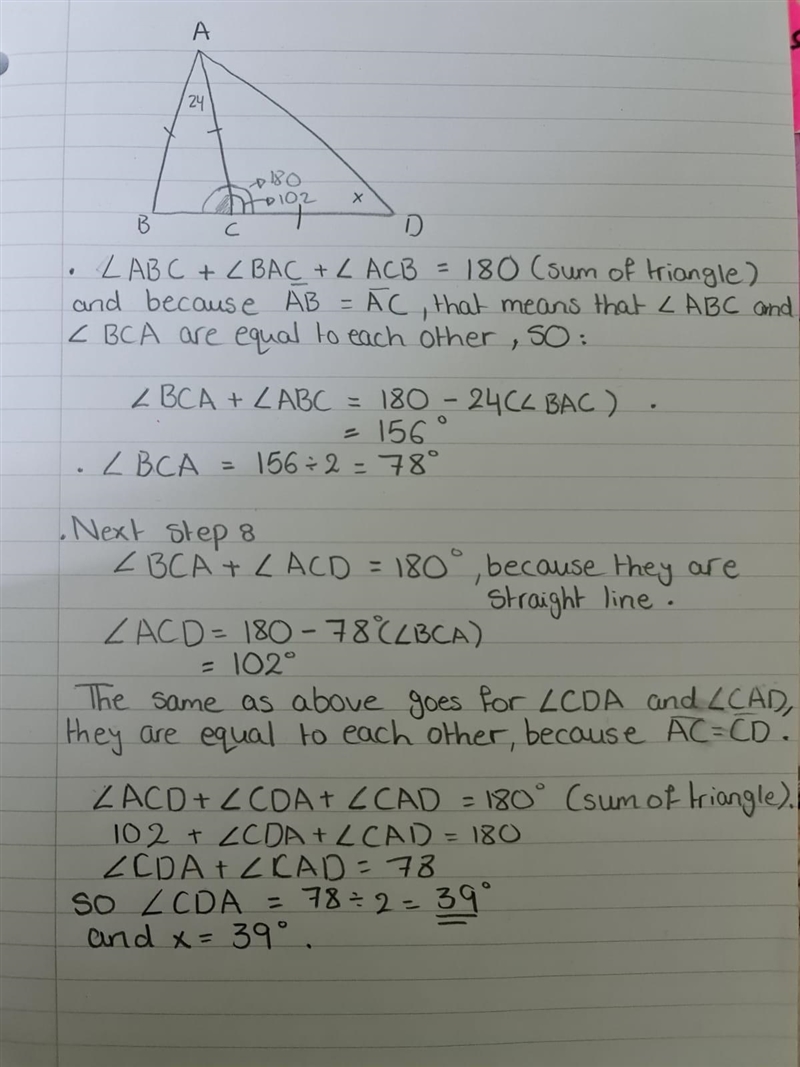 A
24
180
102
x
B
C
D
. ∠ABC + ∠BAC + ∠ACB = 180 (sum of triangle)
and because A̅B = A̅C, that means that ∠ABC and
∠BCA are equal to each other, so:
∠BCA + ∠ABC = 180 - 24(∠BAC) .
= 156°
. ∠BCA = 156 ÷ 2 = 78°
. Next step 8
∠BCA + ∠ACD = 180°, because they are
straight line.
∠ACD = 180 - 78°(∠BCA)
= 102°
The same as above goes for ∠CDA and ∠CAD,
they are equal to each other, because A̅C̅ = C̅D̅.
∠ACD + ∠CDA + ∠CAD = 180° (sum of triangle).
102 + ∠CDA + ∠CAD = 180
∠CDA + ∠CAD = 78
so ∠CDA = 78 ÷ 2 = 39°
and x = 39°.